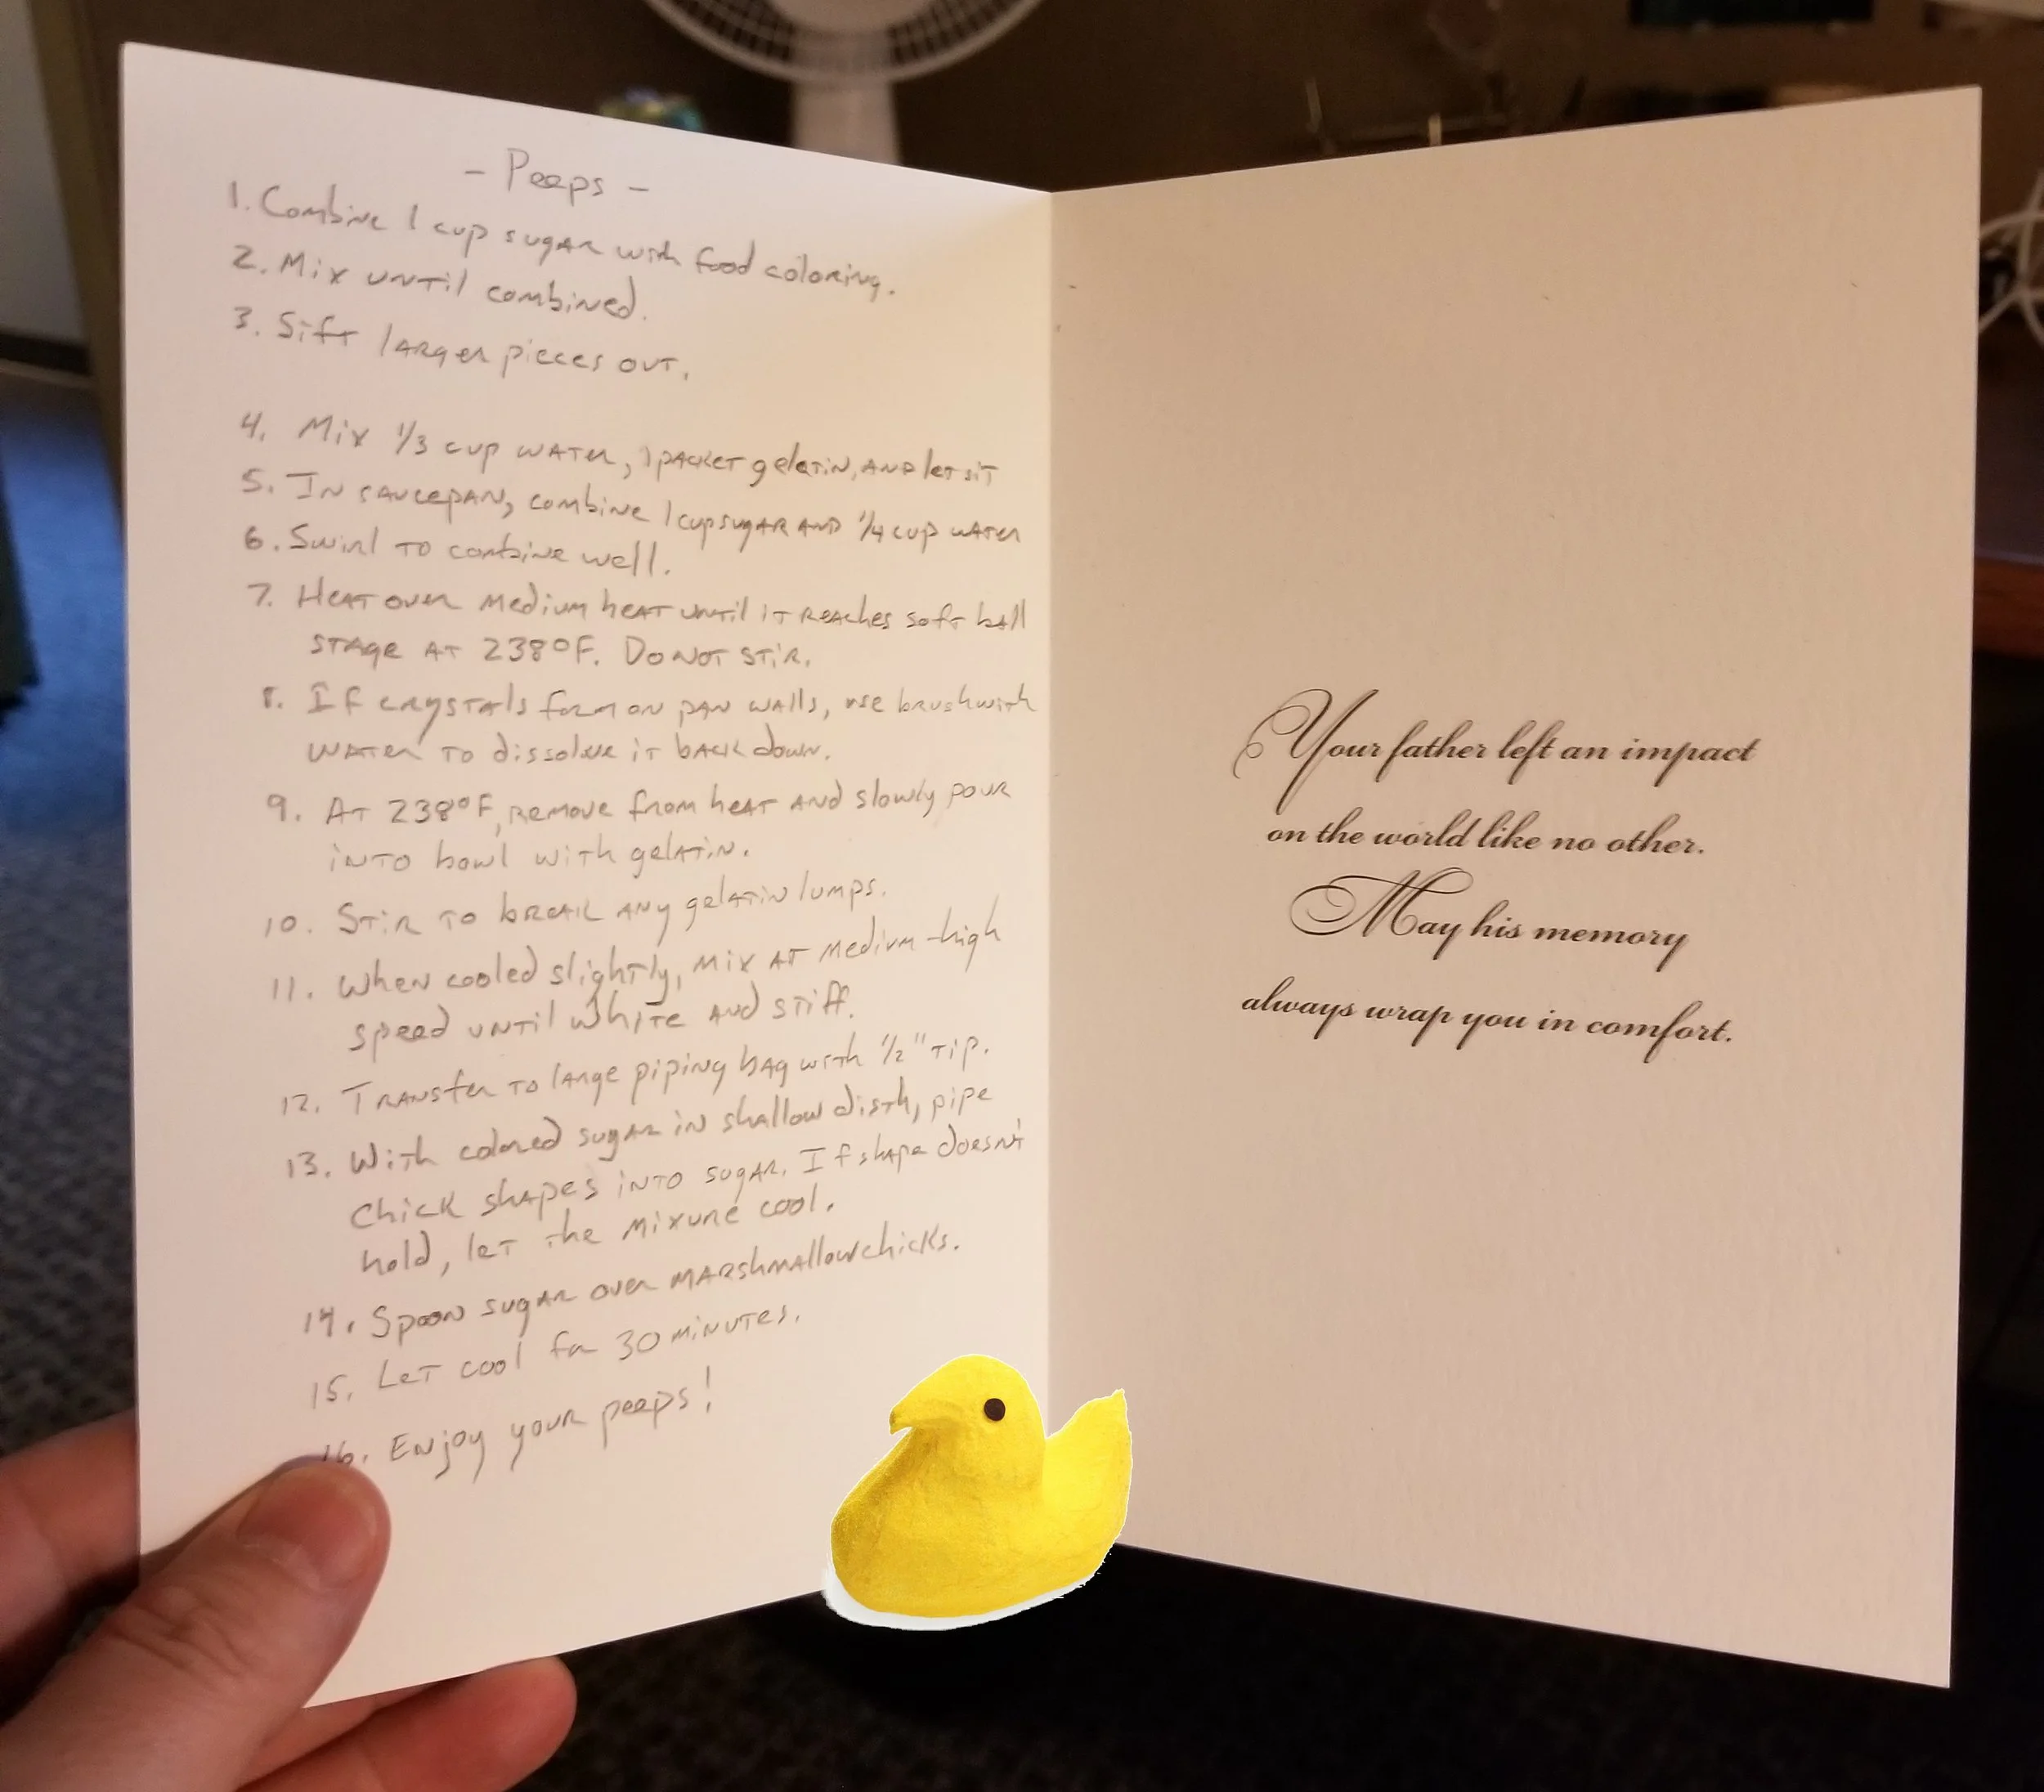 - Peeps -
1. Combine 1 cup sugar with food coloring.
2. Mix until combined.
3. Sift larger pieces out.
4. Mix 1/3 cup water, 1 packet gelatin, and let sit
5. In saucepan, combine 1 cup sugar and 1/4 cup water
6. Swirl to combine well.
7. Heat over medium heat until it reaches soft ball
stage at 238°F. Do not stir.
8. If crystals form on pan walls, use brush with
water to dissolve it back down.
9. At 238°F, remove from heat and slowly pour
into bowl with gelatin.
10. Stir to break any gelatin lumps.
11. When cooled slightly, mix at medium-high
speed until white and stiff.
12. Transfer to large piping bag with 1/2" tip.
13. With colored sugar in shallow disth, pipe
chick shapes into sugar. If shape doesn't
hold, let the mixure cool.
14. Spoon sugar over marshmallow chicks.
15. Let cool for 30 minutes.
16. Enjoy your peeps!
Your father left an impact
on the world like no other.
May his memory
always wrap you in comfort.